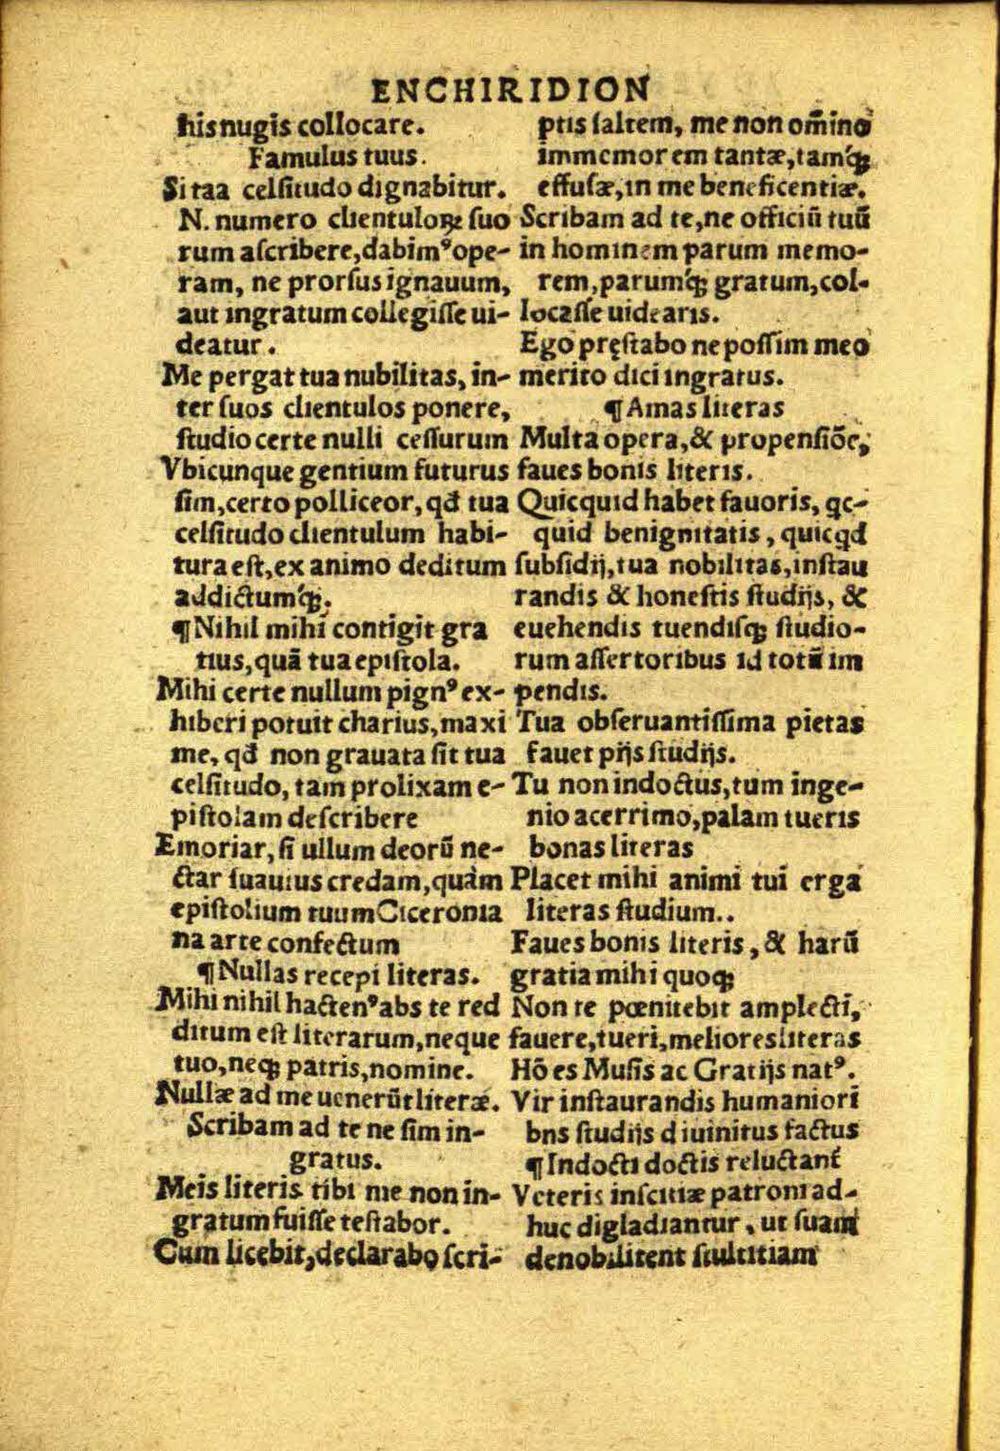 ENCHIRIDION
his nugis collocare.
Famulus tuus.
Si taa celſitudo dignabitur.
N. numero clientuloꝝ ſuo
rum aſcribere, dabimꝰ ope-
ram, ne prorſus ignauum,
aut ingratum collegiſſe ui-
deatur.
Me pergat tua nubilitas, in-
ter ſuos clientulos ponere,
ſtudio certe nulli ceſſurum
Vbicunque gentium futurus
ſim, certo polliceor, qđ tua
celſitudo clientulum habi-
tura eſt, ex animo deditum
addictumq́ꝫ.
¶ Nihil mihi contigit gra
tius, quã tua epiſtola.
Mihi certe nullum pignꝰ ex-
hiberi potuit charius, maxi
me, qđ non grauata ſit tua
celſitudo, tam prolixam e-
piſtolam deſcribere
Emoriar, ſi ullum deorũ ne-
ctar ſuauius credam, quàm
epiſtolium tuum Ciceronia
na arte confectum
¶ Nullas recepi literas.
Mihi nihil hactenꝰ abs te red
ditum eſt literarum, neque
tuo, neqꝫ patris, nomine.
Nullæ ad me uenerũt literæ.
Scribam ad te ne ſim in-
gratus.
Meis literis tibi me non in-
gratum fuiſſe teſtabor.
Cum licebit, declarabo ſcri-
ptis ſaltem, me non om̃ino
immemorem tantæ, tamq́ꝫ
effuſæ, in me beneficentiæ.
Scribam ad te, ne officiũ tuũ
in hominem parum memo-
rem, parumq́ꝫ gratum, col-
locaſſe uidearis.
Ego pręſtabo ne poſſim meo
merito dici ingratus.
¶ Amas literas
Multa opera, & propenſiõe,
faues bonis literis.
Quicquid habet fauoris, qc-
quid benignitatis, quicqd
ſubſidij, tua nobilitas, inſtau
randis & honeſtis ſtudijs, &
euehendis tuendiſqꝫ ſtudio-
rum aſſertoribus id totũ im
pendis.
Tua obſeruantiſſima pietas
fauet pijs ſtudijs.
Tu non indoctus, tum inge-
nio acerrimo, palam tueris
bonas literas
Placet mihi animi tui erga
literas ſtudium..
Faues bonis literis, & harũ
gratia mihi quoqꝫ
Non te pœnitebit amplecti,
fauere, tueri, meliores literas
Hõ es Muſis ac Gratijs natꝰ.
Vir inſtaurandis humaniori
bns ſtudijs diuinitus factus
¶ Indocti doctis reluctant́
Veteris inſcitiæ patroni ad-
huc digladiantur, ut ſuam
denobilitent ſtultitiam